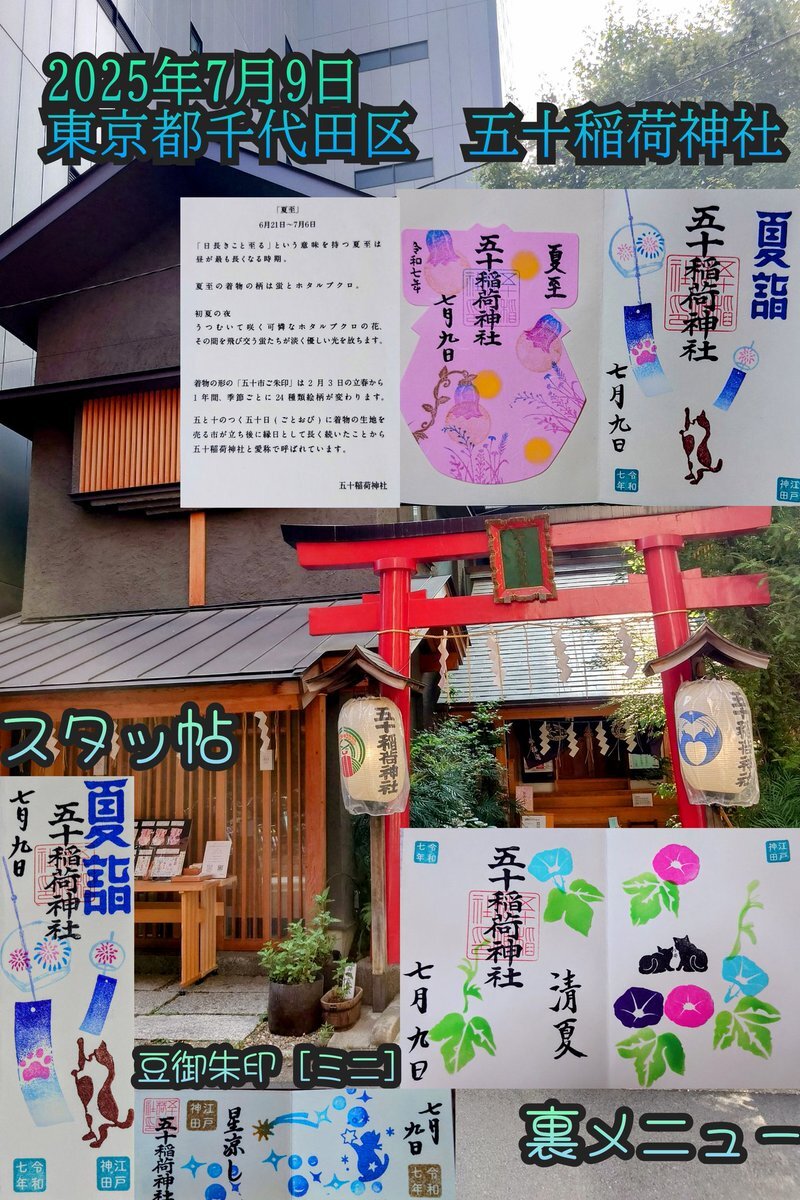 2025年7月9日
東京都千代田区 五十稲荷神社
「夏至」
6月21日〜7月6日
「日長きこと至る」という意味を持つ夏至は
昼が最も長くなる時期。
夏至の着物の柄は蛍とホタルブクロ。
初夏の夜
うつむいて咲く可憐なホタルブクロの花、
その間を飛び交う蛍たちが淡く優しい光を放ちます。
着物の形の「五十市ご朱印」は2月3日の立春から
1年間、季節ごとに24種類絵柄が変わります。
五と十のつく五十日(ごとおび)に着物の生地を
売る市が立ち後に縁日として長く続いたことから
五十稲荷神社と愛称で呼ばれています。
五十稲荷神社
夏至
五十稲荷神社
令和七年
七月九日
夏詣
五十稲荷神社
七月九日
令和七年
江戸神田
五十稲荷神社
五十稲荷神社
スタッ帖
夏詣
五十稲荷神社
七月九日
令和七年
江戸神田
令和七年
江戸神田
五十稲荷神社
清夏
七月九日
豆御朱印［ミニ］
江戸神田
五十稲荷神社
星涼し
七月九日
令和七年
裏メニュー